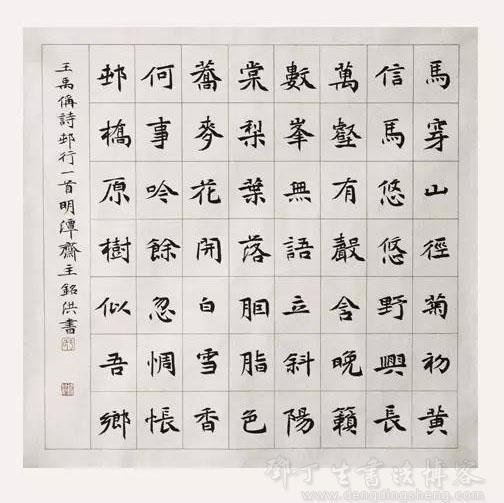 馬穿山徑菊初黃
信馬悠悠野興長
萬壑有聲含晚籟
數峯無語立斜陽
棠梨葉落胭脂色
蕎麥花開白雪香
何事吟餘忽惆悵
邨橋原樹似吾鄉
王禹偁詩邨行一首明潭齋主銘洪書
鄧丁生書法博客
www.dengdingsheng.com